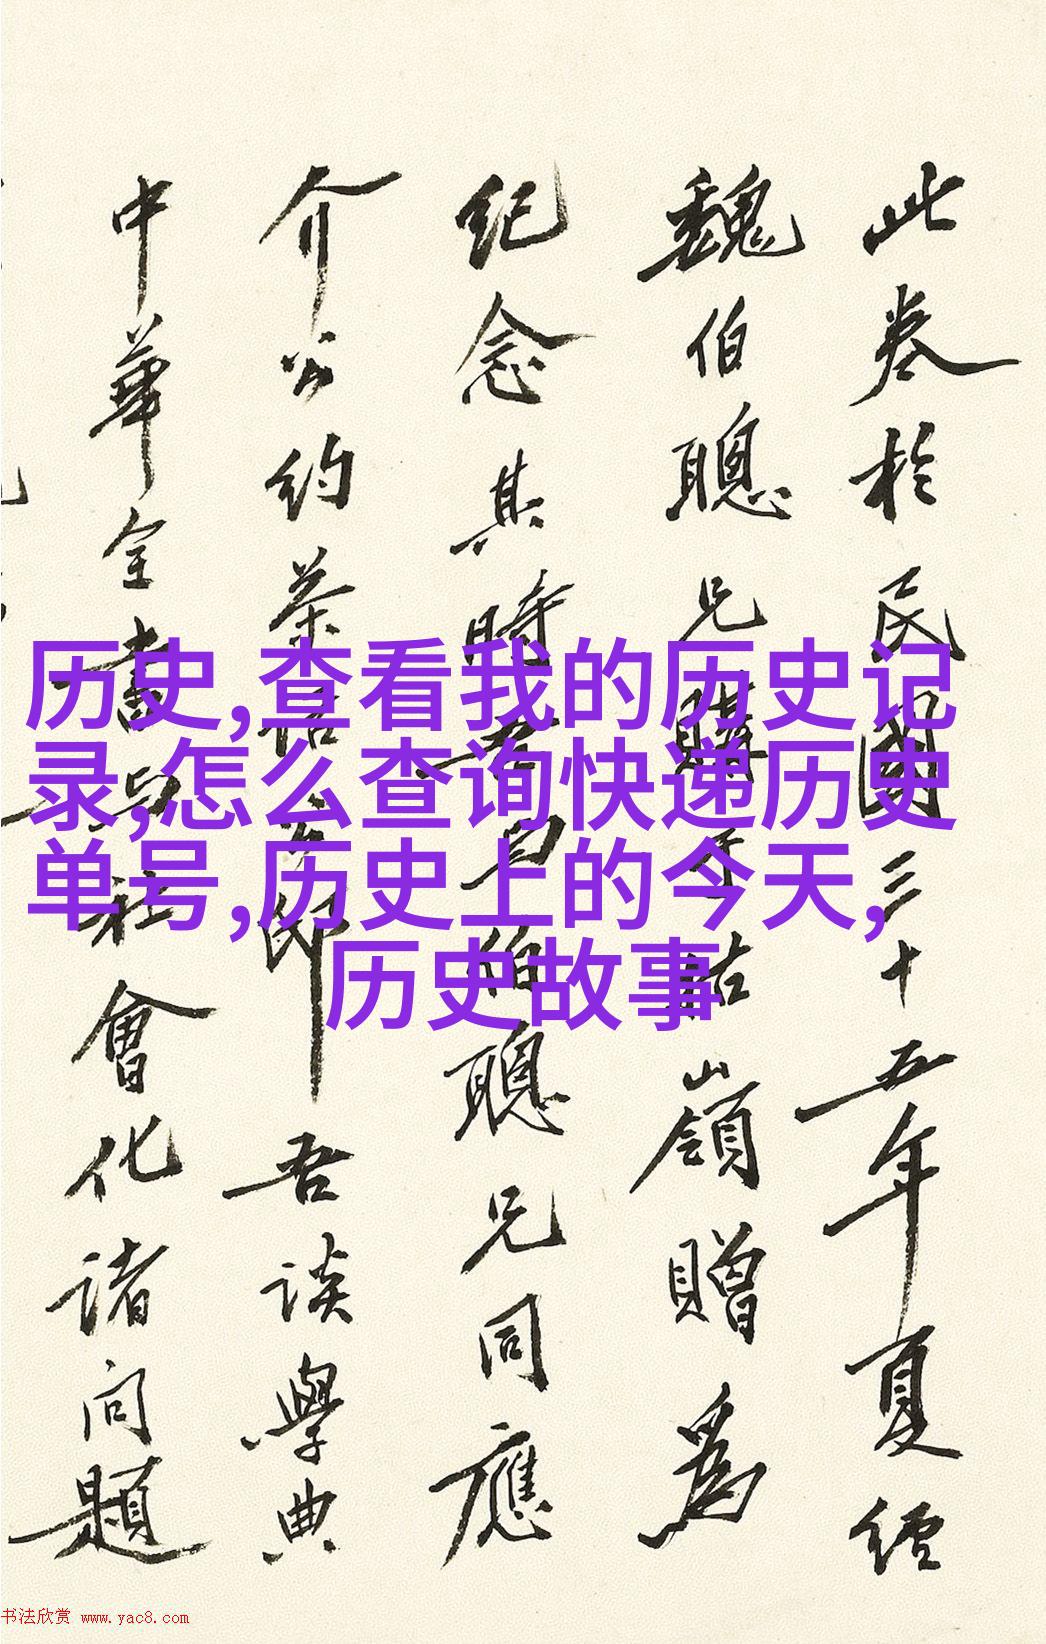 历史,查看我的历史记
录,怎么查询快递历史
单号,历史上的今天,
历史故事
此卷於民國三十五年夏經
魏伯聰兄購于牯嶺贈為
紀念其時吾与伯聰兄同應
介公約茶話吾談學典
中華全書与社會化諸问題
书法欣赏 www.yac8.com